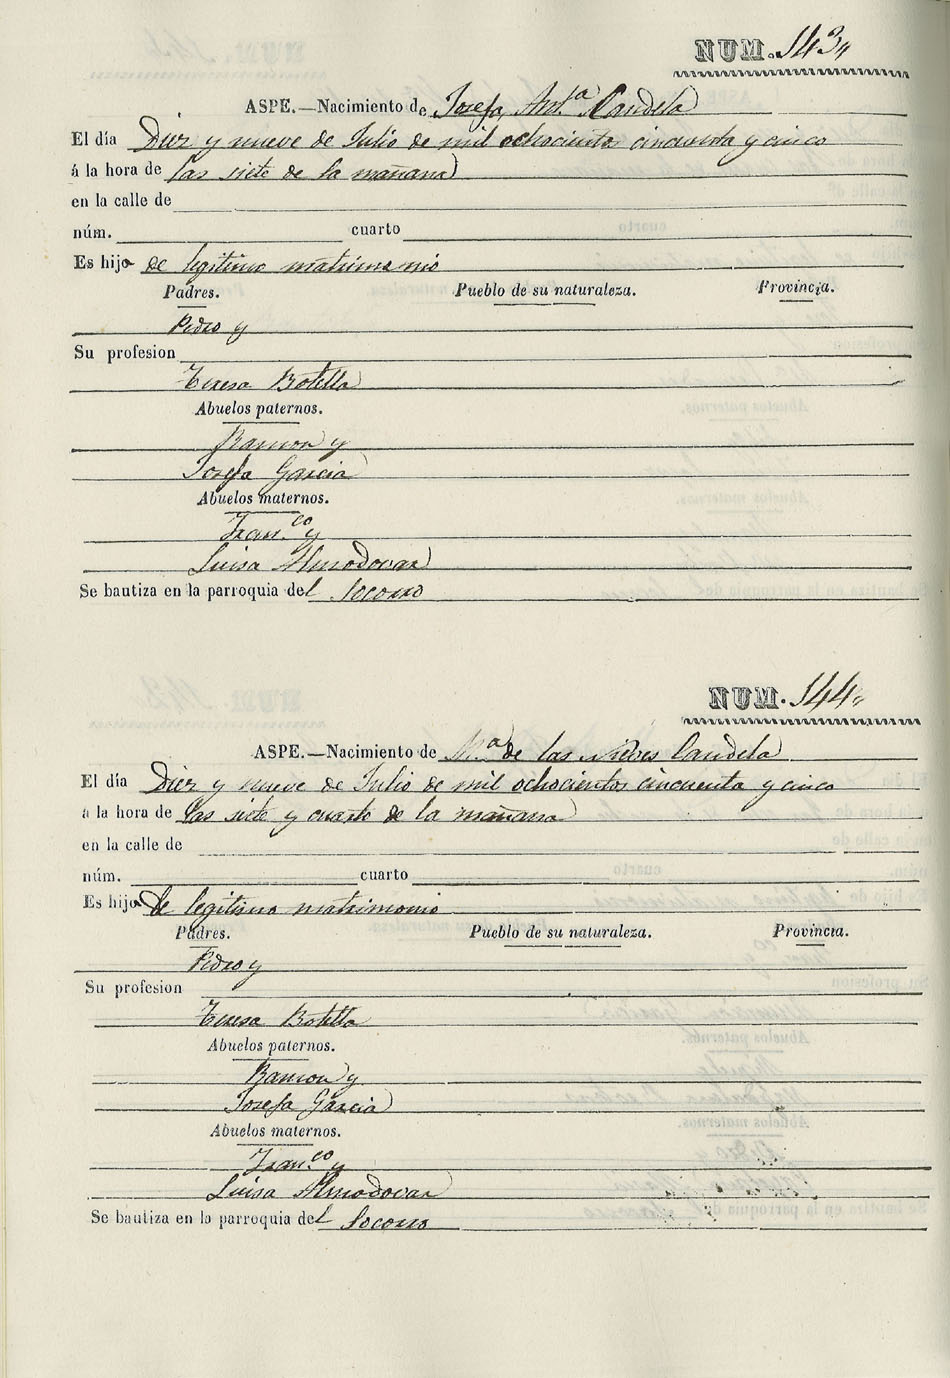 NUM. 143,,
ASPE.—Nacimiento de Josefa, Ant.ª Candela
El día Diez y nueve de Julio de mil ochocientos cincuenta y cinco
á la hora de las siete de la mañana
en la calle de
núm. cuarto
Es hija de legitimo matrimonio
Padres. Pueblo de su naturaleza. Provincia.
Pedro y
Su profesion
Teresa Botella
Abuelos paternos.
Ramon y
Josefa Garcia
Abuelos maternos.
Fran.co y
Luisa Almodovar
Se bautiza en la parroquia del Socorro
NUM. 144,,
ASPE.—Nacimiento de M.ª de las Nieves Candela
El día Diez y nueve de Julio de mil ochocientos cincuenta y cinco
á la hora de las siete y cuarto de la mañana
en la calle de
núm. cuarto
Es hija de legitimo matrimonio
Padres. Pueblo de su naturaleza. Provincia.
Pedro y
Su profesion
Teresa Botella
Abuelos paternos.
Ramon y
Josefa Garcia
Abuelos maternos.
Fran.co y
Luisa Almodovar
Se bautiza en la parroquia del Socorro